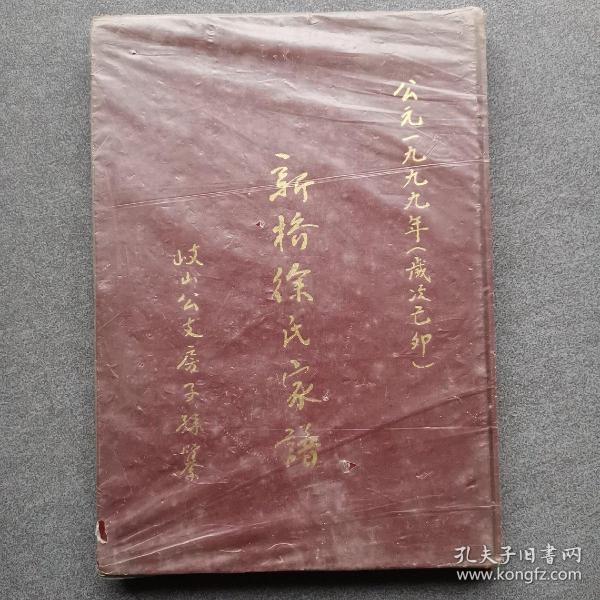 公元一九九九年(歲次己卯)
新桥徐氏家譜
岐山公支房子孫纂
孔夫子旧書网
www.kongfz.com